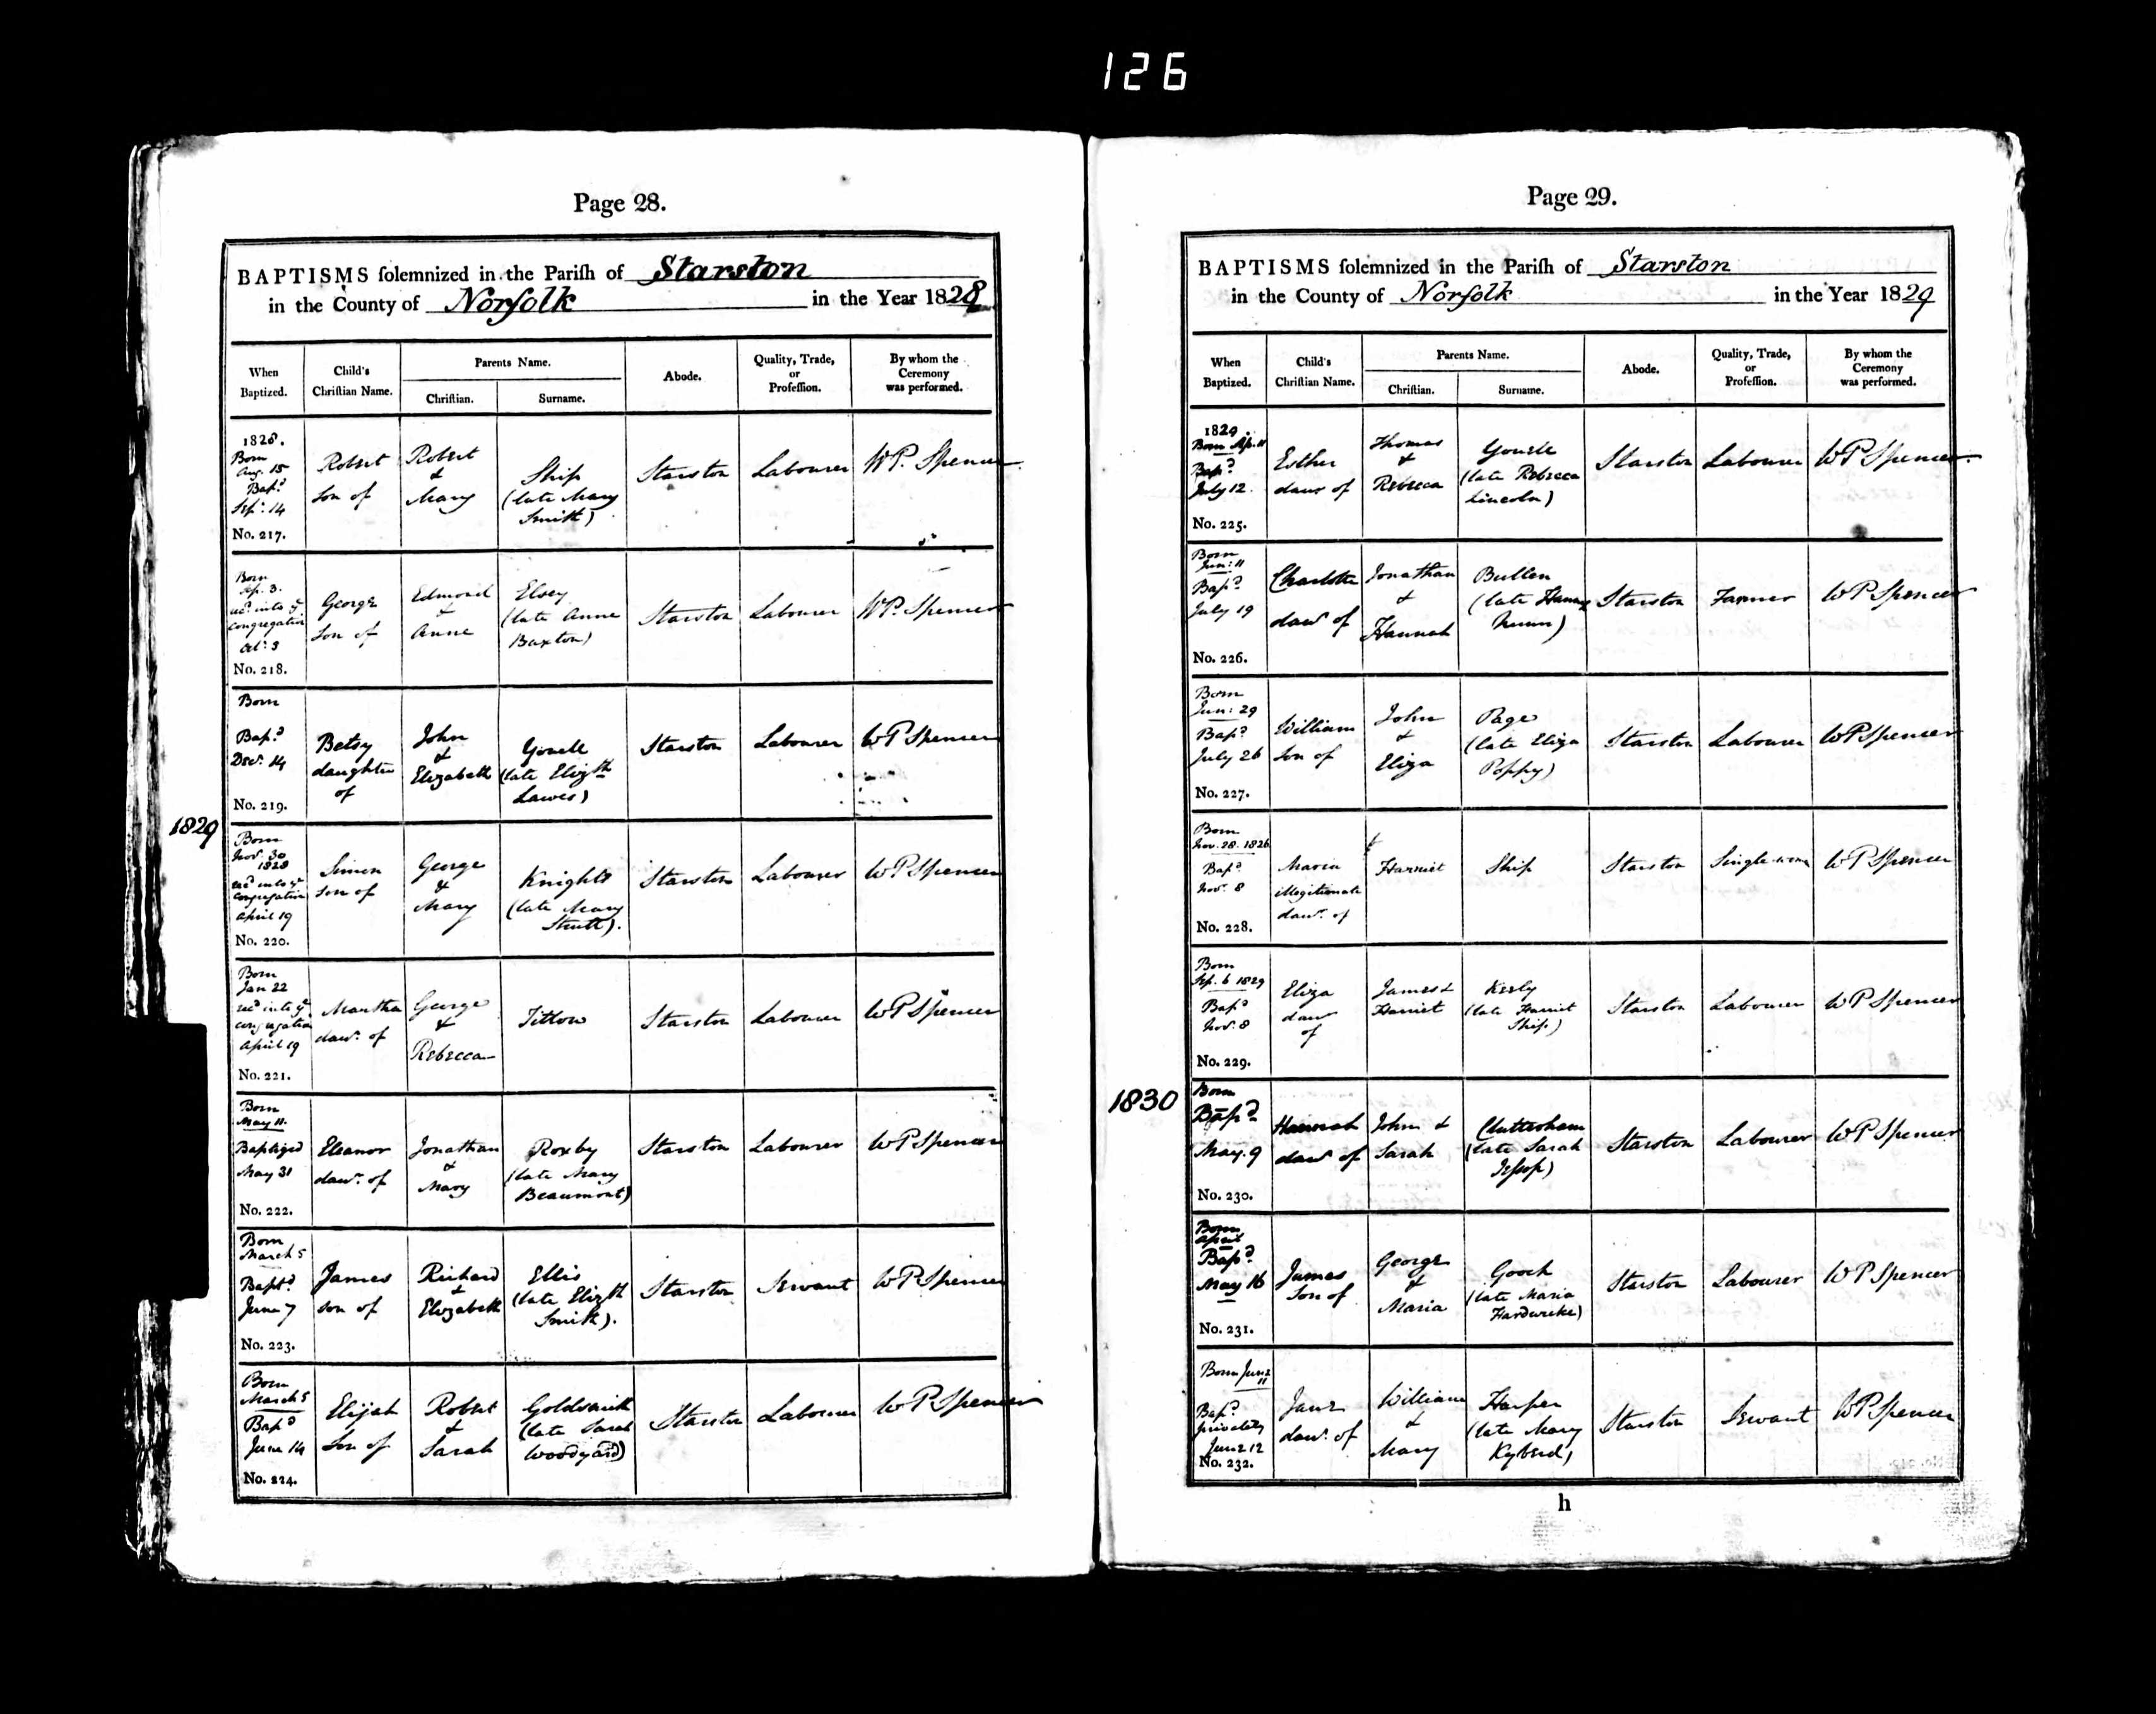 126
Page 28.
BAPTISMS ſolemnized in the Pariſh of Starston
in the County of Norfolk in the Year 1828
When Baptized. Child's Chriſtian Name. Parents Name. Chriſtian. Surname. Abode. Quality, Trade, or Profeſſion. By whom the Ceremony was performed.
1828.
Born Aug. 15 Bap.d Sep.r 14
Robert son of
Robert & Mary
Ship (late Mary Smith)
Starston
Labourer
W.P. Spencer
No. 217.
Born Sep. 3. rec.d into ye congregation Oct.r 3
George Son of
Edmond & Anne
Elsey (late Anne Buxton)
Starston
Labourer
W.P. Spencer
No. 218.
Born
Bap.d Dec.r 14
Betsy daughter of
John & Elizabeth
Gowell (late Elizth Lawes)
Starston
Labourer
W P Spencer
No. 219.
1829
Born Nov. 30 1828 rec.d into ye congregation April 19
Simon son of
George & Mary
Knights (late Mary Strutt).
Starston
Labourer
W P Spencer
No. 220.
Born Jan 22 rec.d into ye congregation April 19
Martha daur. of
George & Rebecca
Tittow
Starston
Labourer
W P Spencer
No. 221.
Born May 11. Baptized May 31
Eleanor daur. of
Jonathan & Mary
Roxby (late Mary Beaumont)
Starston
Labourer
W P Spencer
No. 222.
Born March 5 Bapt.d June 7
James son of
Richard & Elizabeth
Ellis (late Elizth Smith).
Starston
Servant
W P Spencer
No. 223.
Born March 5 Bap.d June 14
Elijah Son of
Robert & Sarah
Goldsmith (late Sarah Woodyard)
Starston
Labourer
W P Spencer
No. 224.
Page 29.
BAPTISMS ſolemnized in the Pariſh of Starston
in the County of Norfolk in the Year 1829
When Baptized. Child's Chriſtian Name. Parents Name. Chriſtian. Surname. Abode. Quality, Trade, or Profeſſion. By whom the Ceremony was performed.
1829.
Born Ap. 11 Bap.d July 12.
Esther daur of
Thomas & Rebecca
Gowell (late Rebecca Lincoln)
Starston
Labourer
W P Spencer
No. 225.
Born Jun: 11 Bap.d July 19
Charlotte daur of
Jonathan & Hannah
Bullen (late Hannah Nunn)
Starston
Farmer
W P Spencer
No. 226.
Born Jun: 29 Bap.d July 26
William Son of
John & Eliza
Page (late Eliza Poppy)
Starston
Labourer
W P Spencer
No. 227.
Born Nov. 28. 1826 Bap.d Nov.r 8
Maria illegitimate daur. of
Harriet
Ship
Starston
Single-woman
W P Spencer
No. 228.
Born Sep. 6 1829 Bap.d Nov.r 8
Eliza daur of
James & Harriet
Kerly (late Harriet Ship)
Starston
Labourer
W P Spencer
No. 229.
1830
Born Bap.d May. 9
Hannah daur of
John & Sarah
Chattesham (late Sarah Jessop)
Starston
Labourer
W P Spencer
No. 230.
Born April Bap.d May 16
James Son of
George & Maria
Gooch (late Maria Hardwicke)
Starston
Labourer
W P Spencer
No. 231.
Born June 11 Bap.d privately June 12
Jane daur. of
William & Mary
Harper (late Mary Kyberd)
Starston
Servant
W P Spencer
No. 232.
h